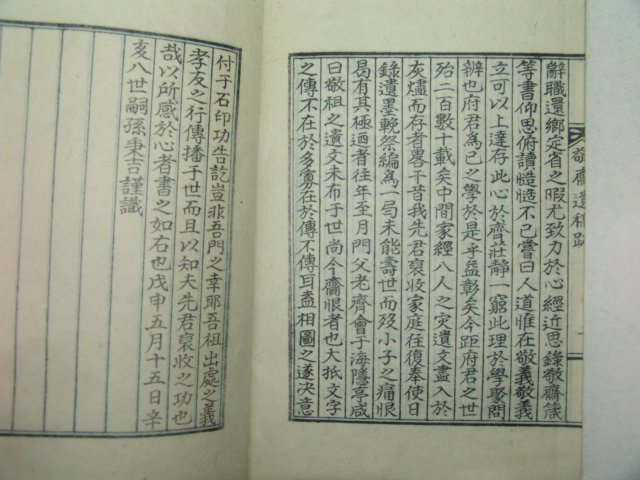 敬齋遺稿跋
辭職還鄉定省之暇尤致力於心經近思錄敬齋箴
等書仰思俯讀慥慥不已嘗曰人道惟在敬義敬義
立可以上達存此心於齊莊靜一窮此理於學聚問
辨也府君爲己之學於是乎益彰矣今距府君之世
殆二百數十載矣中間家經八人之灾遺文盡入於
灰燼而存者畧干昔我先君裒收家庭往復奉使日
錄遺墨輓祭編爲一局未能壽世而歿小子之痛恨
曷有其極迺者往年至月門父老齊會于海隱亭咸
曰敬祖之遺文未布于世尚今齎恨者也大抵文字
之傳不在於多寡在於傳不傳耳盍相圖之遂决意
付于石印功告訖豈非吾門之幸耶吾祖出處之義
孝友之行傳播于世而且以知夫先君裒收之功也
哉以所感於心者書之如右也戊申五月十五日辛
亥八世嗣孫秉吉謹識